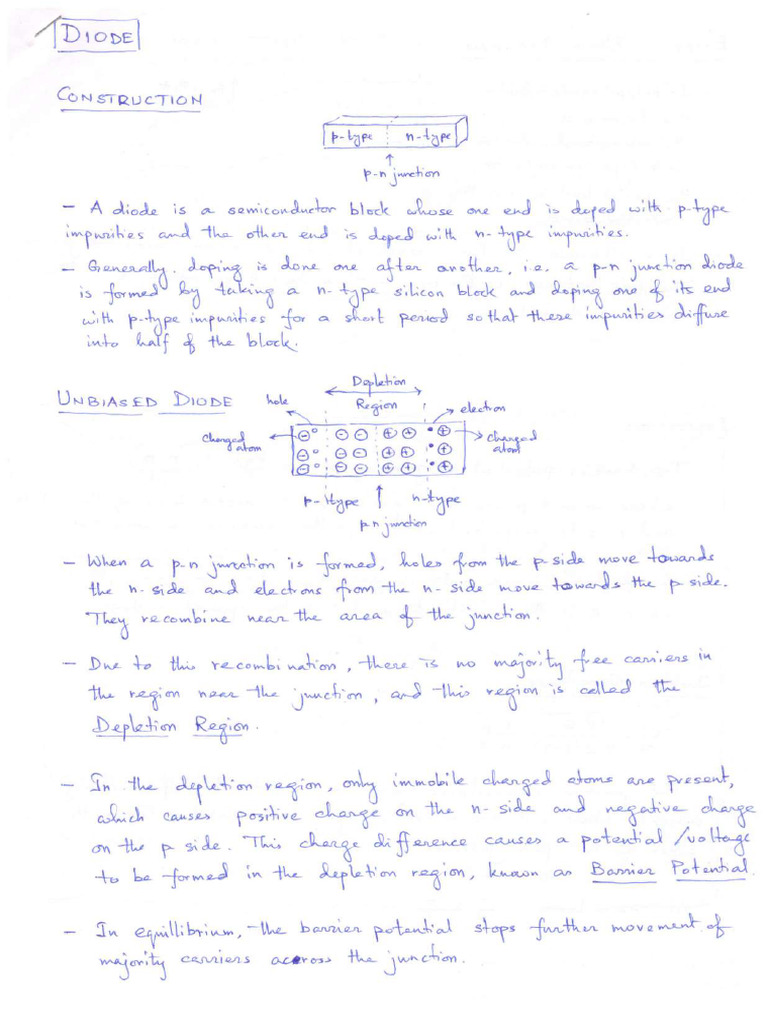 DIODE
CONSTRUCTION
p-type n-type
p-n junction
- A diode is a semiconductor block whose one end is doped with p-type
impurities and the other end is doped with n-type impurities.
- Generally, doping is done one after another, i.e. a p-n junction diode
is formed by taking a n-type silicon block and doping one of its end
with p-type impurities for a short period so that these impurities diffuse
into half of the block.
Depletion
UNBIASED DIODE
hole
Region
electron
charged
atom
charged
atom
p-type
n-type
p n junction
- When a p-n junction is formed, holes from the p-side move towards
the n-side and electrons from the n-side move towards the p side.
They recombine near the area of the junction.
- Due to this recombination, there is no majority free carriers in
the region near the junction, and this region is called the
Depletion Region.
- In the depletion region, only immobile charged atoms are present,
which causes positive charge on the n-side and negative charge
on the p side. This charge difference causes a potential/voltage
to be formed in the depletion region, known as Barrier Potential.
- In equillibrium, the barrier potential stops further movement of
majority carriers across the junction.